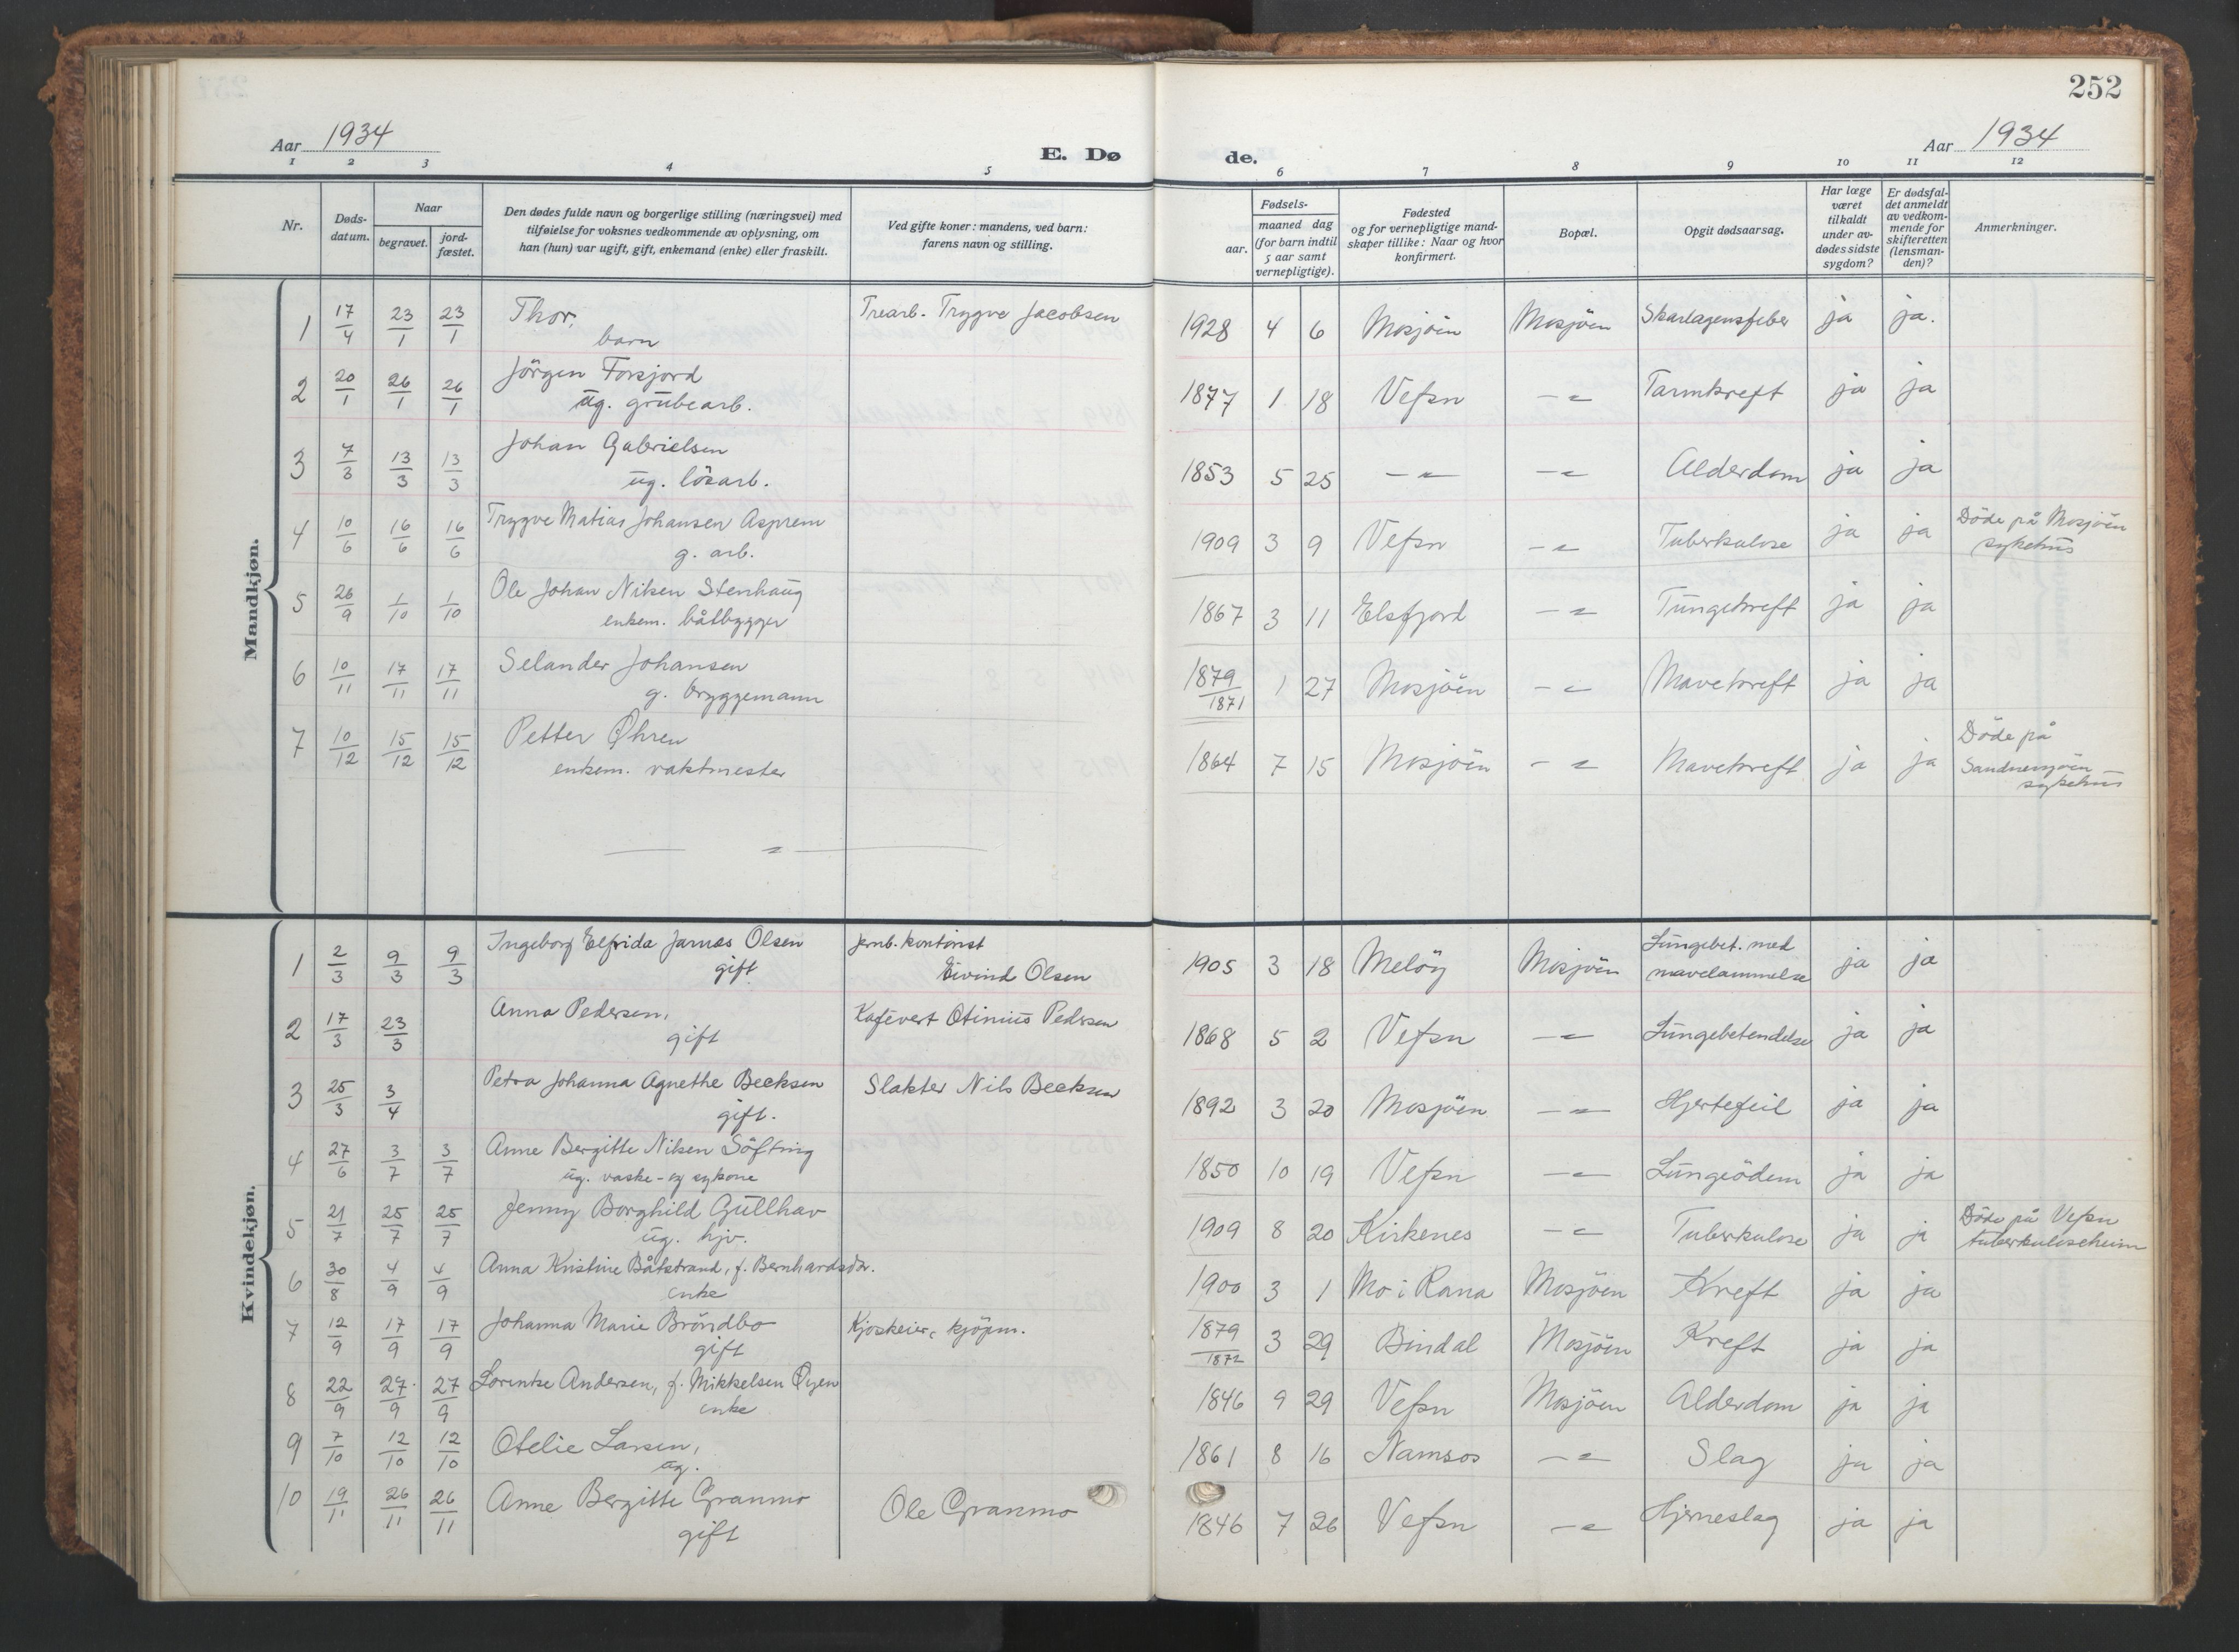 252
Aar 1934
E. Dø
de.
Aar 1934
1 2 3 4 5 6 7 8 9 10 11 12
Nr.
Døds-
datum.
Naar
begravet.
jord-
fæstet.
Den dødes fulde navn og borgerlige stilling (næringsvei) med
tilføielse for voksnes vedkommende av oplysning, om
han (hun) var ugift, gift, enkemand (enke) eller fraskilt.
Ved gifte koner: mandens, ved barn:
farens navn og stilling.
Fødsels-
aar.
maaned dag
(for barn indtil
5 aar samt
vernepligtige).
Fødested
og for vernepligtige mand-
skaper tillike: Naar og hvor
konfirmert.
Bopæl.
Opgit dødsaarsag.
Har læge
været
tilkaldt
under av-
dødes sidste
sygdom?
Er dødsfal-
det anmeldt
av vedkom-
mende for
skifteretten
(lensman-
den)?
Anmerkninger.
Mandkjøn.
1 17/4 23/1 23/1 Thor, Trearb. Trygve Jacobsen 1928 4 6 Mosjöen Mosjöen Skarlagensfeber ja ja.
barn
2 20/1 26/1 26/1 Jörgen Forsjord 1877 1 18 Vefsn -"- Tarmkreft ja ja
ug. grubearb.
3 7/3 13/3 13/3 Johan Gabrielsen 1853 5 25 -"- -"- Alderdom ja ja
ug. lösarb.
4 10/6 16/6 16/6 Trygve Matias Johansen Asprem 1909 3 9 Vefsn -"- Tuberkulose ja ja Döde på Mosjöen
g. arb. sykehus
5 26/9 1/10 1/10 Ole Johan Nilsen Stenhaug 1867 3 11 Elsfjord -"- Tungekreft ja ja
enkem. båtbygger
6 10/11 17/11 17/11 Selander Johansen 1879/1871 1 27 Mosjöen -"- Mavekreft ja ja
g. bryggemann
7 10/12 15/12 15/12 Petter Øhren 1864 7 15 Mosjöen -"- Mavekreft ja ja Döde på
enkem. vaktmester Sandnessjöen
sykehus
— " —
Kvindekjøn.
1 2/3 9/3 9/3 Ingeborg Elfrida Jarnæs Olsen Jernb. kontorist 1905 3 18 Melöy Mosjöen Lungebet. med ja ja
gift Eivind Olsen mavelammelse
2 17/3 23/3 Anna Pedersen, Kafévert Otinius Pedersen 1868 5 2 Vefsn -"- Lungebetendelse ja ja
gift
3 25/3 3/4 Petra Johanna Agnethe Becksen Slakter Nils Becksen 1892 3 20 Mosjöen -"- Hjertefeil ja ja
gift.
4 27/6 3/7 3/7 Anne Bergitte Nilsen Söfting 1850 10 19 Vefsn -"- Lungeödem ja ja
ug. vaske- og sykone
5 21/7 25/7 25/7 Jenny Borghild Gullhav 1909 8 20 Kirkenes -"- Tuberkulose ja ja Döde på Vefsn
ug. hjv. tuberkuloseheim
6 30/8 4/9 4/9 Anna Kristine Båtstrand, f. Bernhardsdtr. 1900 3 1 Mo i Rana Mosjöen Kreft ja ja
enke
7 12/9 17/9 17/9 Johanna Marie Bröndbo Kjoskeier, kjöpm. 1879/1872 3 29 Bindal Mosjöen Kreft ja ja
gift
8 22/9 27/9 27/9 Lorentse Andersen, f. Mikkelsen Øyen 1846 9 29 Vefsn Mosjöen Alderdom ja ja
enke
9 7/10 12/10 12/10 Otelie Larsen, 1861 8 16 Namsos -"- Slag ja ja
ug.
10 19/11 26/11 26/11 Anne Bergitte Granmo Ole Granmo 1846 7 26 Vefsn -"- Hjerneslag ja ja
gift